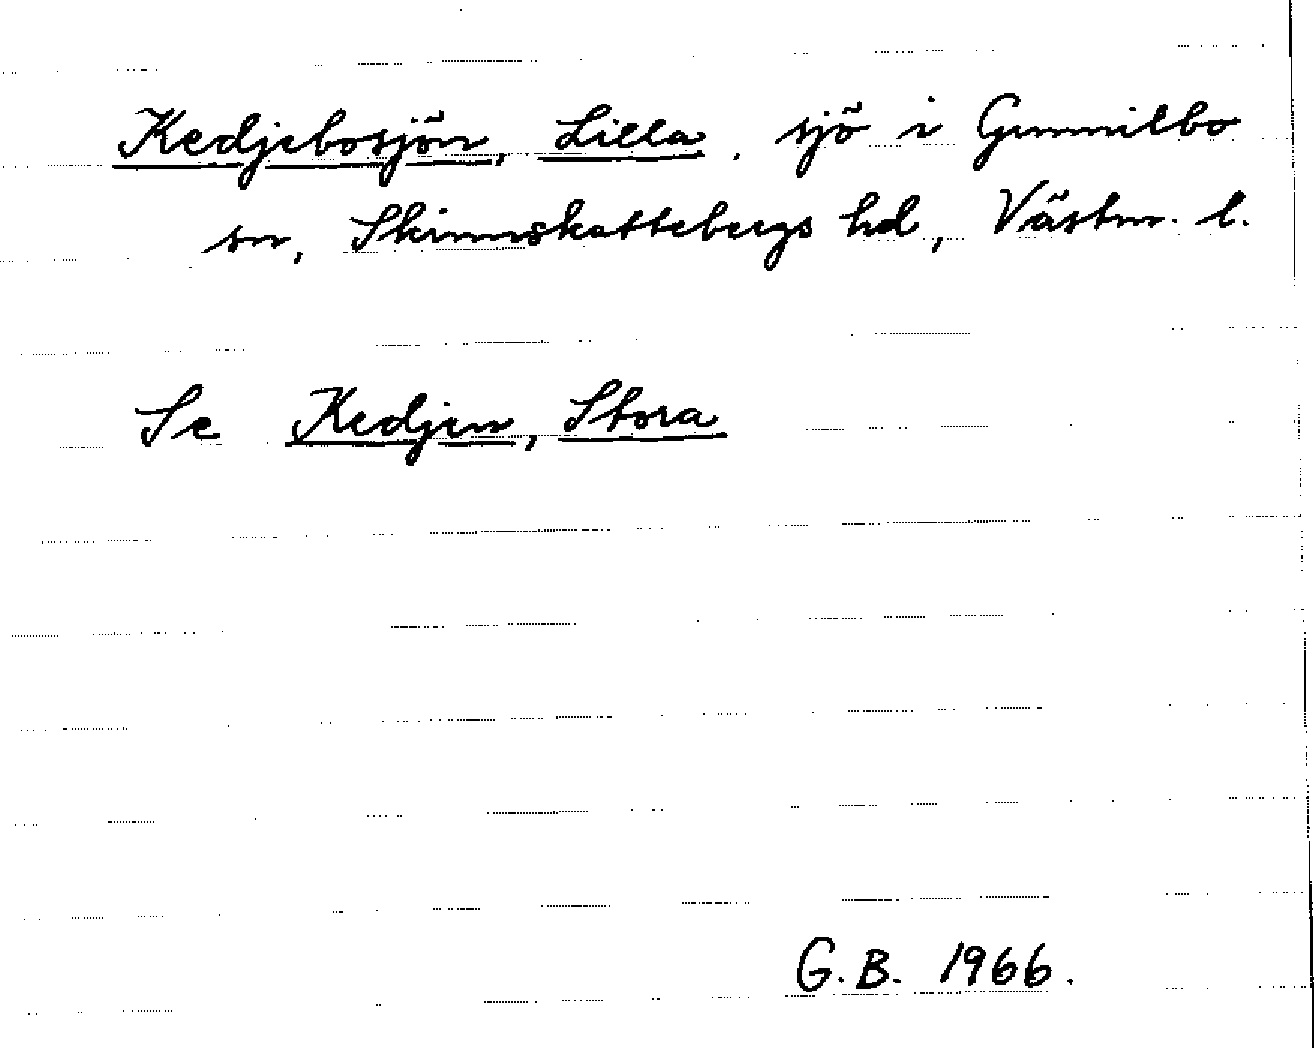 Kedjebosjön, Lilla, sjö i Gunnilbo
sn, Skinnskattebergs hd, Västm. l.
Se Kedjen, Stora
G.B. 1966.